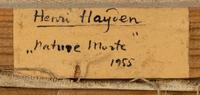 Henri Hayden
„Nature Morte"
1955